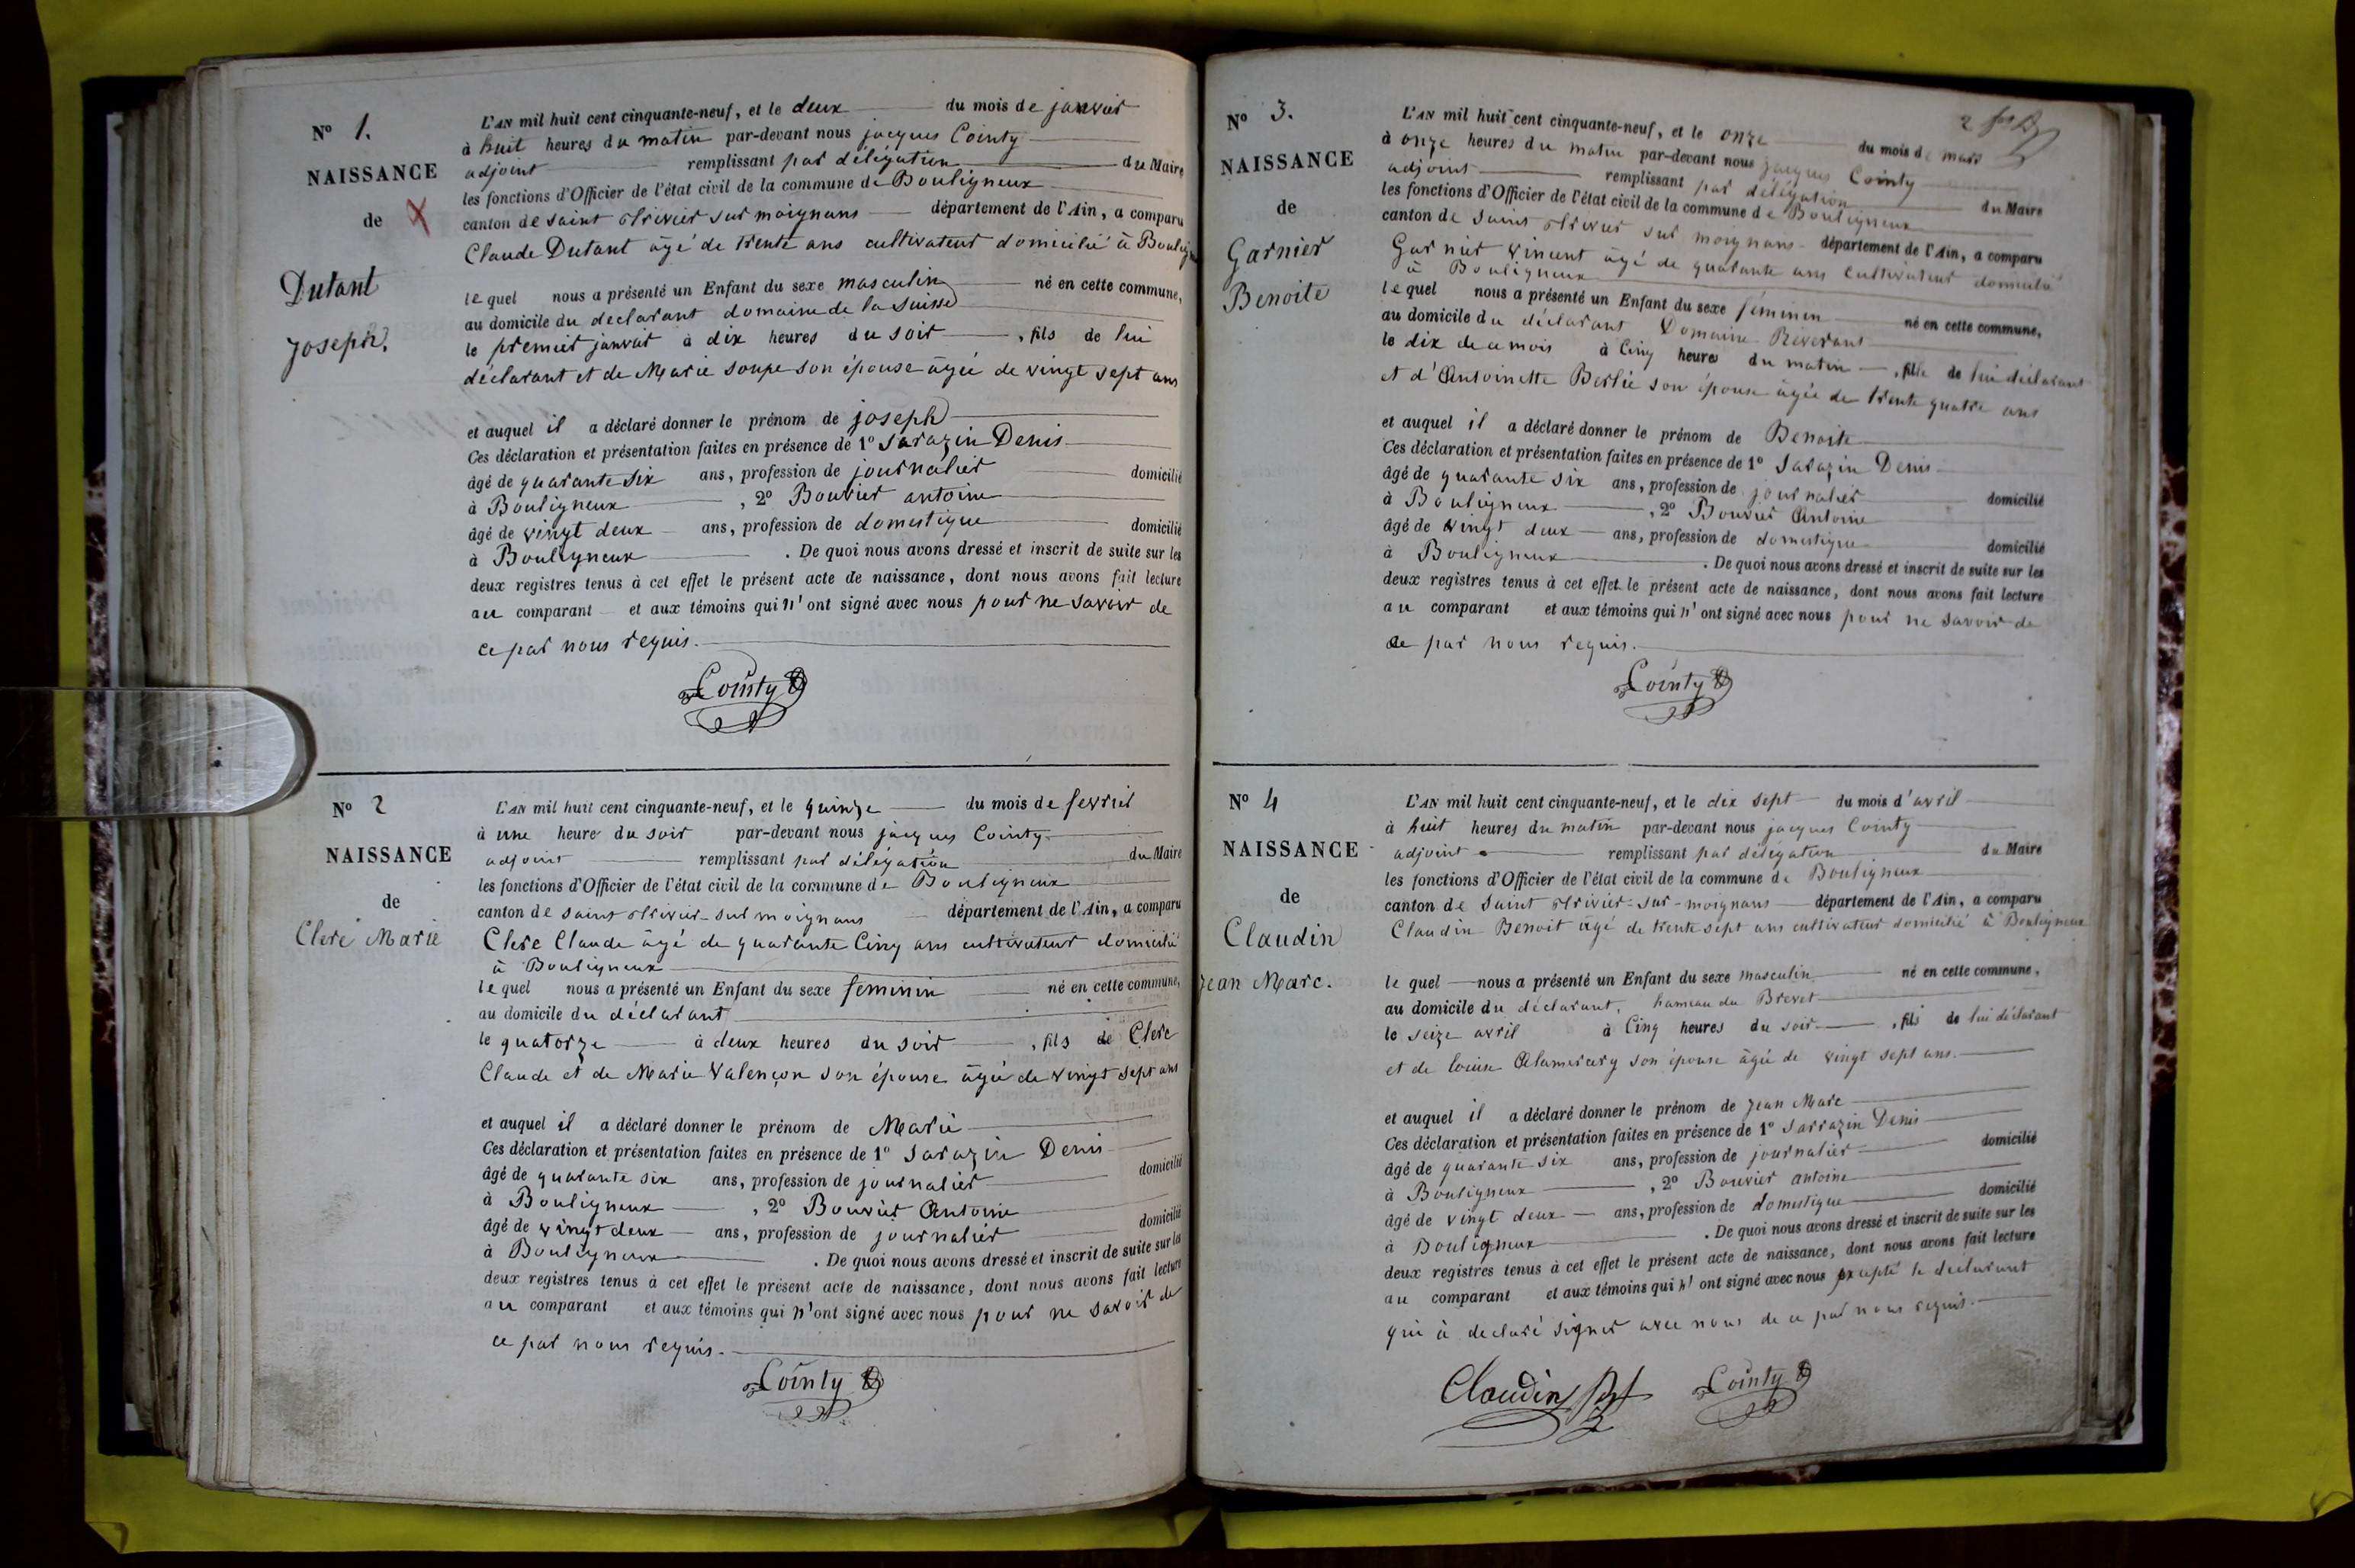 N° 1.
NAISSANCE
de
Dutant
Joseph.
L'AN mil huit cent cinquante-neuf, et le deux du mois de janvier
à huit heures du matin par-devant nous jacques Cointy
adjoint remplissant par délégation du Maire
les fonctions d'Officier de l'état civil de la commune de Bouligneux
canton de saint trivier sur moignans département de l'Ain, a comparu
Claude Dutant âgé de trente ans cultivateur domicilié à Bouligneux
le quel nous a présenté un Enfant du sexe masculin né en cette commune,
au domicile du déclarant domaine de la Suisse
le premier janvier à dix heures du soir, fils de lui
déclarant et de Marie soupe son épouse âgée de vingt sept ans
et auquel il a déclaré donner le prénom de joseph
Ces déclaration et présentation faites en présence de 1° Sarazin Denis
âgé de quarante six ans, profession de journalier domicilié
à Bouligneux, 2° Bouvier antoine
âgé de vingt deux ans, profession de domestique domicilié
à Bouligneux. De quoi nous avons dressé et inscrit de suite sur les
deux registres tenus à cet effet le présent acte de naissance, dont nous avons fait lecture
au comparant et aux témoins qui n'ont signé avec nous pour ne savoir de
ce par nous requis.
Cointy
N° 2
NAISSANCE
de
Clerc Marie
L'AN mil huit cent cinquante-neuf, et le quinze du mois de fevrier
à une heure du soir par-devant nous jacques Cointy
adjoint remplissant par délégation du Maire
les fonctions d'Officier de l'état civil de la commune de Bouligneux
canton de saint trivier-sur moignans département de l'Ain, a comparu
Clerc Claude âgé de quarante Cinq ans cultivateur domicilié
à Bouligneux
le quel nous a présenté un Enfant du sexe feminin né en cette commune,
au domicile du déclarant
le quatorze à deux heures du soir, fils de Clerc
Claude et de Marie Valençon son épouse âgée de vingt sept ans
et auquel il a déclaré donner le prénom de Marie
Ces déclaration et présentation faites en présence de 1° Sarazin Denis
âgé de quarante six ans, profession de journalier domicilié
à Bouligneux, 2° Bouvier Antoine
âgé de vingt deux ans, profession de journalier domicilié
à Bouligneux. De quoi nous avons dressé et inscrit de suite sur les
deux registres tenus à cet effet le présent acte de naissance, dont nous avons fait lecture
au comparant et aux témoins qui n'ont signé avec nous pour ne savoir de
ce par nous requis.
Cointy
2
N° 3.
NAISSANCE
de
Garnier
Benoite
L'AN mil huit cent cinquante-neuf, et le onze du mois de mars
à onze heures du matin par-devant nous jacques Cointy
adjoint remplissant par délégation du Maire
les fonctions d'Officier de l'état civil de la commune de Bouligneux
canton de saint trivier sur moignans département de l'Ain, a comparu
Garnier vincent âgé de quarante ans cultivateur domicilié
à Bouligneux
le quel nous a présenté un Enfant du sexe féminin né en cette commune,
au domicile du déclarant Domaine Riverant
le dix de ce mois à Cinq heures du matin, fille de lui déclarant
et d'Antoinette Berlie son épouse âgée de trente quatre ans
et auquel il a déclaré donner le prénom de Benoite
Ces déclaration et présentation faites en présence de 1° Sarazin Denis
âgé de quarante six ans, profession de journalier domicilié
à Bouligneux, 2° Bouvier Antoine
âgé de vingt deux ans, profession de domestique domicilié
à Bouligneux. De quoi nous avons dressé et inscrit de suite sur les
deux registres tenus à cet effet le présent acte de naissance, dont nous avons fait lecture
au comparant et aux témoins qui n'ont signé avec nous pour ne savoir de
ce par nous requis.
Cointy
N° 4
NAISSANCE
de
Claudin
jean Marc.
L'AN mil huit cent cinquante-neuf, et le dix sept du mois d'avril
à huit heures du matin par-devant nous jacques Cointy
adjoint remplissant par délégation du Maire
les fonctions d'Officier de l'état civil de la commune de Bouligneux
canton de saint trivier-sur-moignans département de l'Ain, a comparu
Claudin Benoit âgé de trente sept ans cultivateur domicilié à Bouligneux
le quel nous a présenté un Enfant du sexe masculin né en cette commune,
au domicile du déclarant, hameau du Brevet
le seize avril à Cinq heures du soir, fils de lui déclarant
et de louise Alamercery son épouse âgée de vingt sept ans.
et auquel il a déclaré donner le prénom de jean Marc
Ces déclaration et présentation faites en présence de 1° Sarrazin Denis
âgé de quarante six ans, profession de journalier domicilié
à Bouligneux, 2° Bouvier antoine
âgé de vingt deux ans, profession de domestique domicilié
à Bouligneux. De quoi nous avons dressé et inscrit de suite sur les
deux registres tenus à cet effet le présent acte de naissance, dont nous avons fait lecture
au comparant et aux témoins qui n'ont signé avec nous excepté le déclarant
qui à déclaré signer avec nous de ce par nous requis.
Claudin Cointy